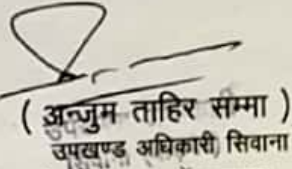 ( अन्जुम ताहिर सम्मा )
उपखण्ड अधिकारी सिवाना